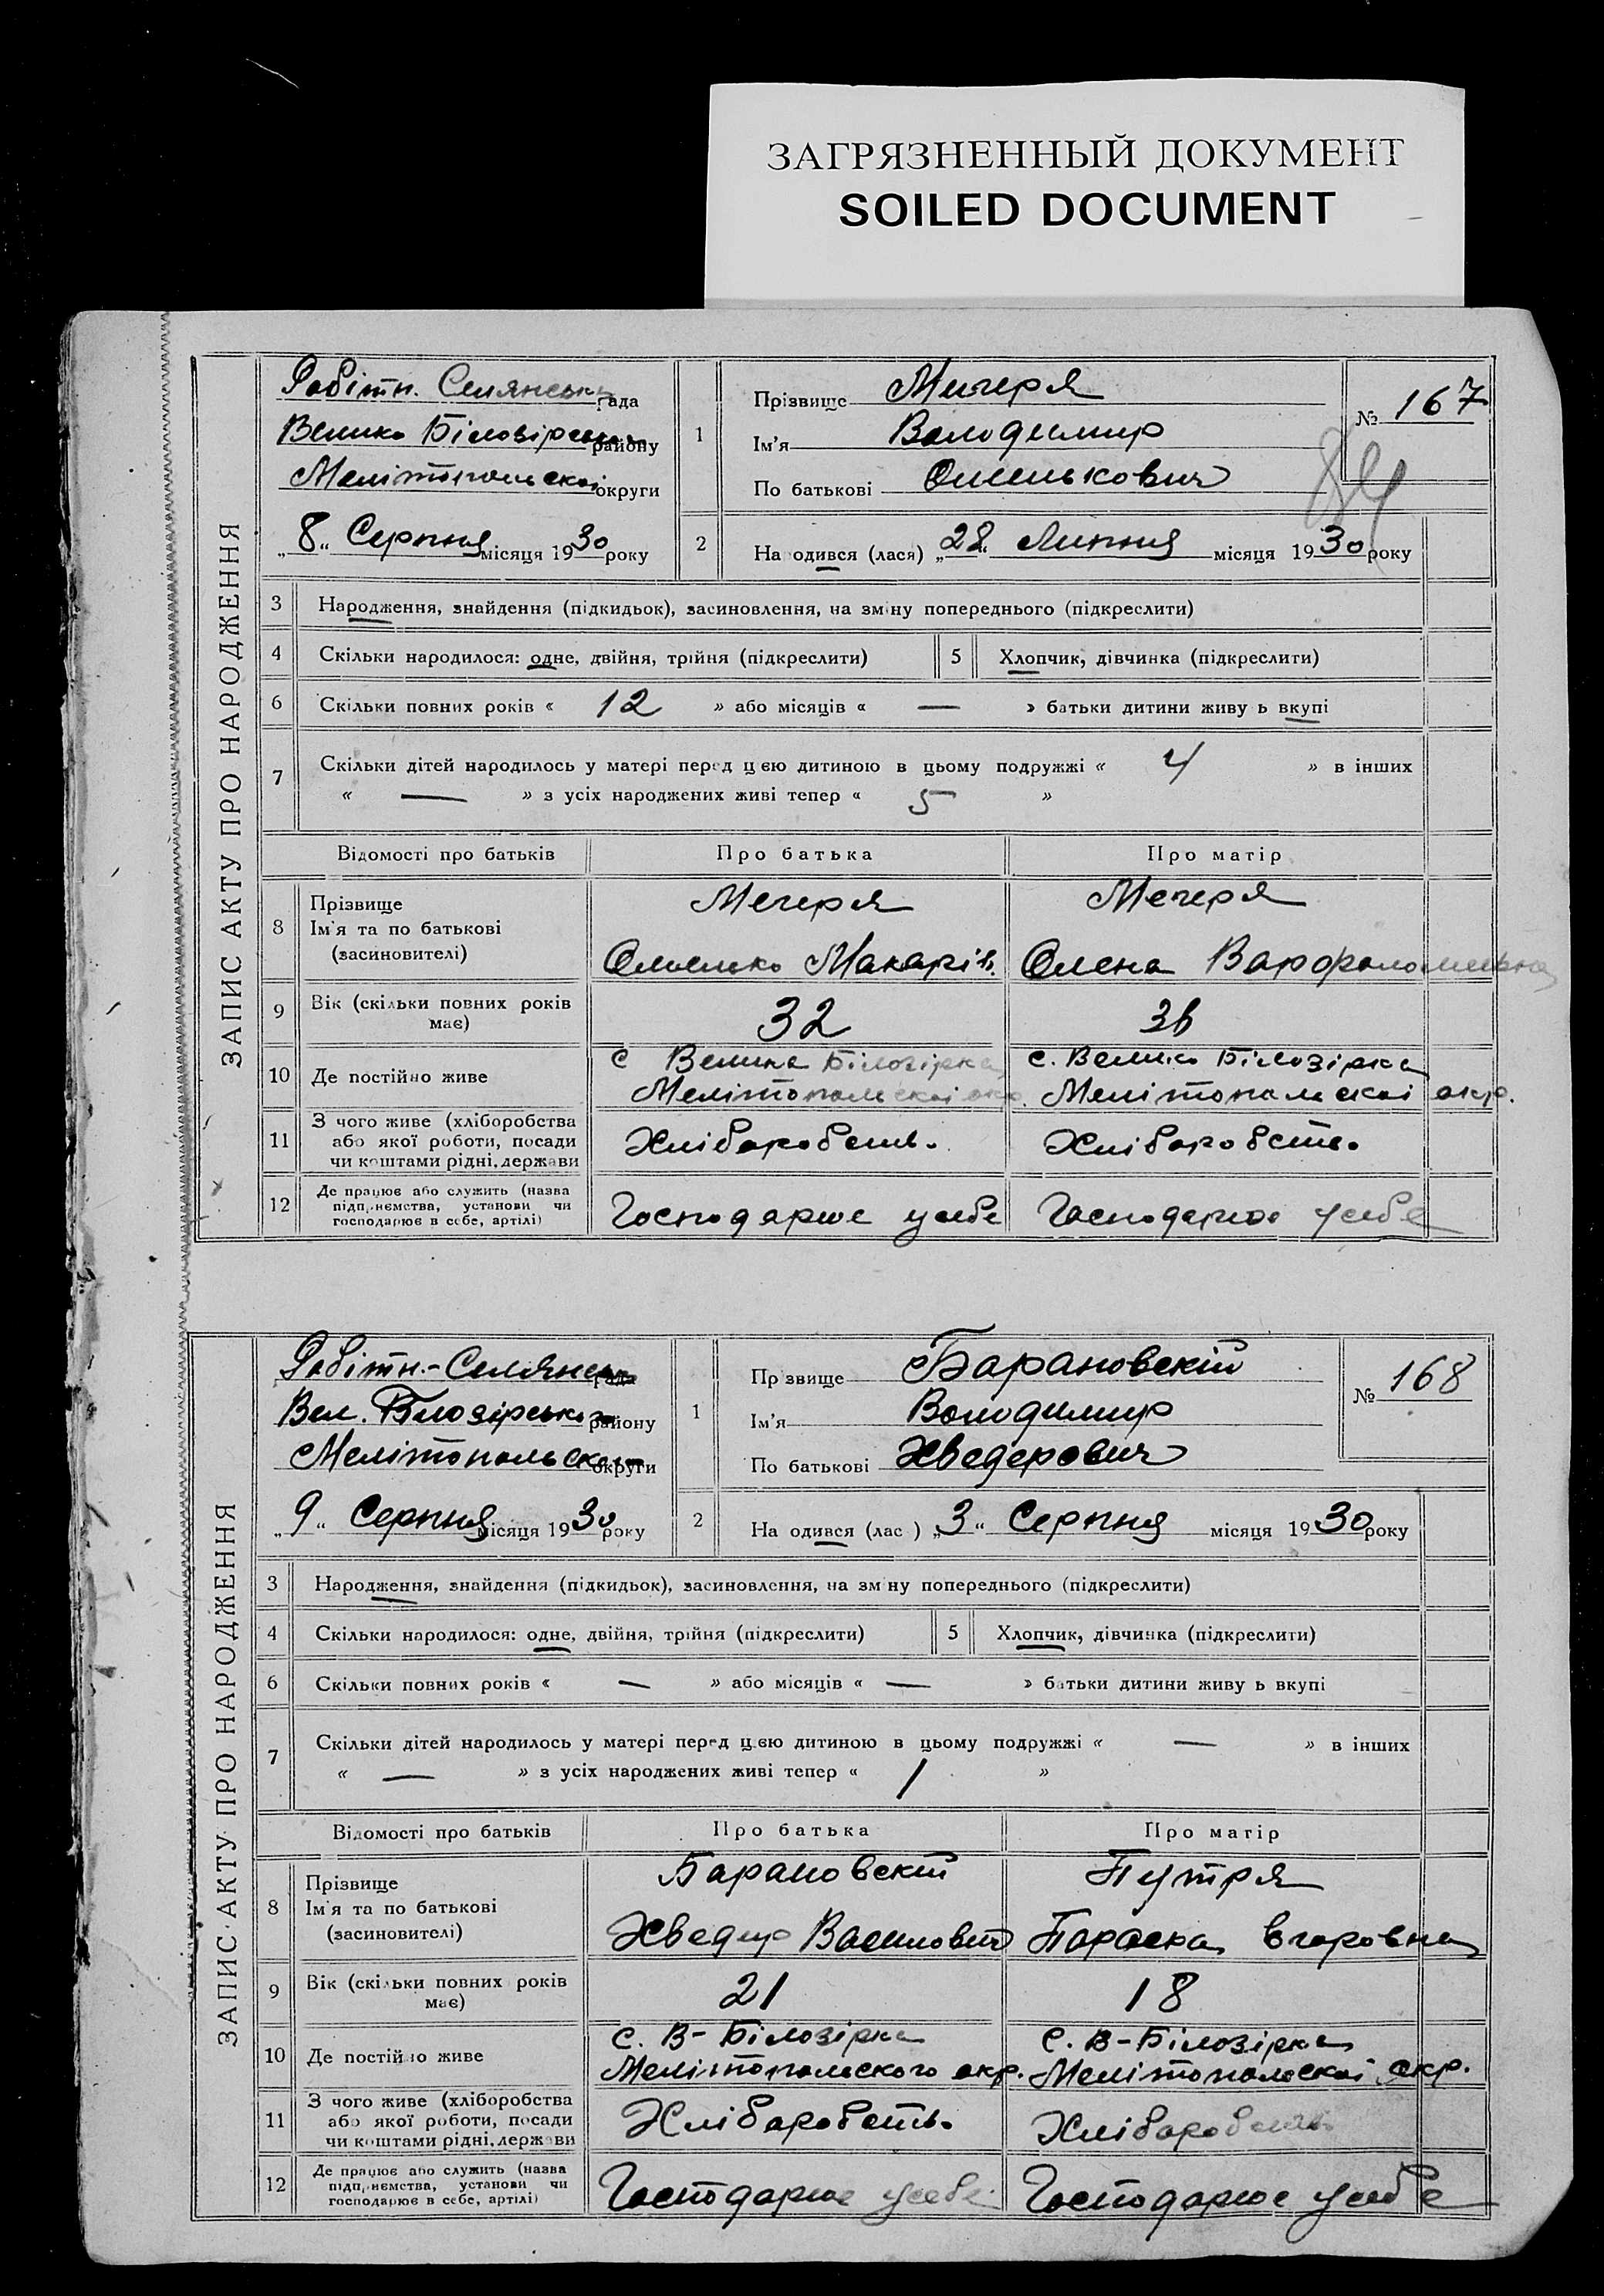 ЗАГРЯЗНЕННЫЙ ДОКУМЕНТ
SOILED DOCUMENT
ЗАПИС АКТУ ПРО НАРОДЖЕННЯ
Робітн. Селянська рада
Велико Білозірського району
Мелітопольскої округи
„8“ Серпня місяця 1930 року
1
Прізвище Мечеря
Ім'я Володимир
По батькові Омелькович
№ 167
2
На одився (лася) „28“ Липня місяця 1930 року
3 Народження, знайдення (підкидьок), засиновлення, на зміну попереднього (підкреслити)
4 Скільки народилося: одне, двійня, трійня (підкреслити) 5 Хлопчик, дівчинка (підкреслити)
6 Скільки повних років « 12 » або місяців « — » батьки дитини живу ь вкупі
7 Скільки дітей народилось у матері перед цією дитиною в цьому подружжі « 4 » в інших
« — » з усіх народжених живі тепер « 5 »
Відомості про батьків Про батька Про матір
8 Прізвище Мечеря Мечеря
Ім'я та по батькові
(засиновителі) Омелько Макарів. Олена Варфоломеївна
9 Вік (скільки повних років має) 32 36
10 Де постійно живе с Велика Білозірка с. Велика Білозірка
Мелітопольскої окр. Мелітопольскої окр.
11 З чого живе (хліборобства
або якої роботи, посади
чи коштами рідні, держави Хліборобств. Хліборобств.
12 Де працює або служить (назва
підприємства, установи чи
господарює в себе, артілі) Господарює усебе Господарює усебе
ЗАПИС АКТУ ПРО НАРОДЖЕННЯ
Робітн.-Селянська рада
Вел. Білозірського району
Мелітопольскої округи
„9“ Серпня місяця 1930 року
1
Пр звище Барановскій
Ім'я Володимир
По батькові Хведерович
№ 168
2
На одився (лас ) „3“ Серпня місяця 1930 року
3 Народження, знайдення (підкидьок), засиновлення, на зм ну попереднього (підкреслити)
4 Скільки народилося: одне, двійня, трійня (підкреслити) 5 Хлопчик, дівчинка (підкреслити)
6 Скільки повних років « — » або місяців « — » батьки дитини живу ь вкупі
7 Скільки дітей народилось у матері перед цією дитиною в цьому подружжі « — » в інших
« — » з усіх народжених живі тепер « 1 »
Відомості про батьків Про батька Про матір
8 Прізвище Барановскій Путря
Ім'я та по батькові
(засиновителі) Хведир Василовит Параска Егоровна
9 Вік (скільки повних років має) 21 18
10 Де постійно живе с. В-Білозірка с. В-Білозірка
Мелітопольского окр. Мелітопольскої окр.
11 З чого живе (хліборобства
або якої роботи, посади
чи коштами рідні, держави Хліборобств. Хліборобств.
12 Де працює або служить (назва
підприємства, установи чи
господарює в себе, артілі) Господарює усебе Господарює усебе